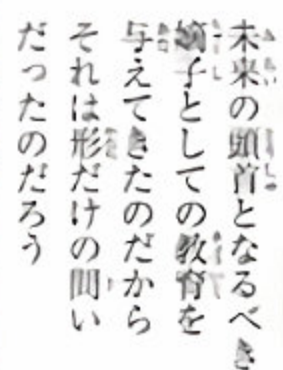 未来の頭首となるべき
嫡子としての教育を
与えてきたのだから
それは形だけの問い
だったのだろう